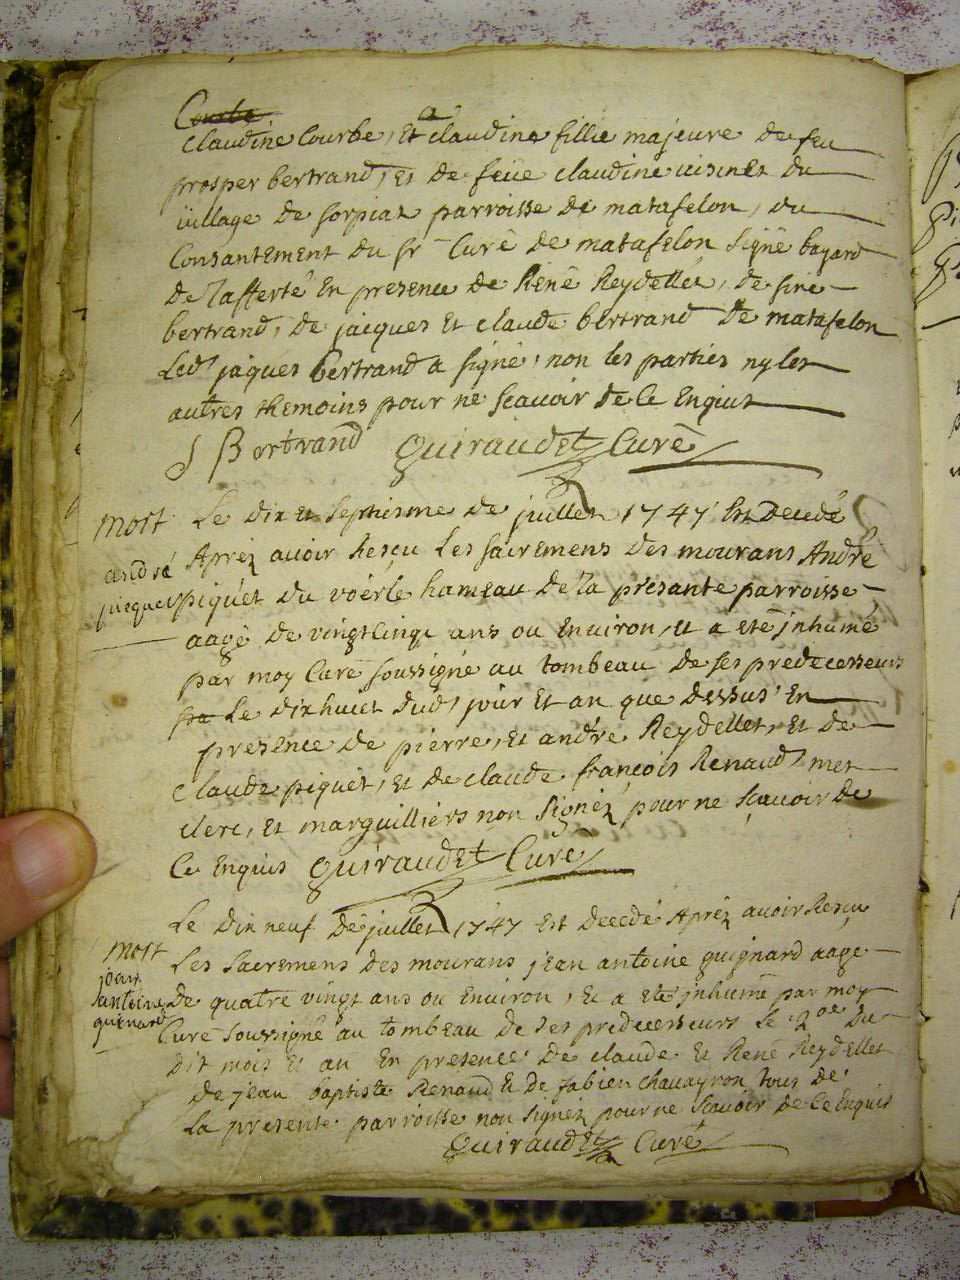 Courbe
claudine Courbe, Et a claudine fillie majeure de feu
prosper bertrand, Et de feüe claudine uisinet du
uillage de sorpiat parroisse de matafelon, du
Consantement du sr Curé de matafelon signé bayard
de lafferté En presence de René Reydellet, de sire
bertrand, de jacques Et claude bertrand de matafelon
Led' jaques bertrand a signé, non les parties ny les
autres themoins pour ne scauoir de Ce Enquis
J Bertrand Guiraudet Curé
mort
andré
piquet
Le dix et septiesme de juillet 1747 Est decedé
Apréz auoir Resçu Les sacremens des mourans André
piquét du voérle hameau de la présante parroisse
aagé de vingt Cinqc ans ou Enuiron, et a eté jnhumé
par moy Curé soussigné au tombeau de ses predecesseurs
pa Le dixhuict dud' jour Et an que dessus En
presence de pierre, et andré Reydellet, Et de
Claude piquét, Et de claude françois Renaud, met
Clerc, Et marguilliers non signéz pour ne sçauoir de
Ce Enquis Guiraudet Curé
mort
jean
antoine
guinard
Le dix neuf de juillet 1747 Est decedé Apréz auoir Resçu
Les Sacremens des mourans jean antoine guignard aagé
de quatre vingt ans ou Enuiron, Et a eté jnhumé par moy
Curé soussigné au tombeau de ses predecesseurs le 20e du
dit mois Et an En presence de claude Et René Reydellet
de jean baptiste Renaud Et de fabien chauayron tous de
La presente parroisse non signéz pour ne scauoir de Ce Enquis
Guiraudet Curé